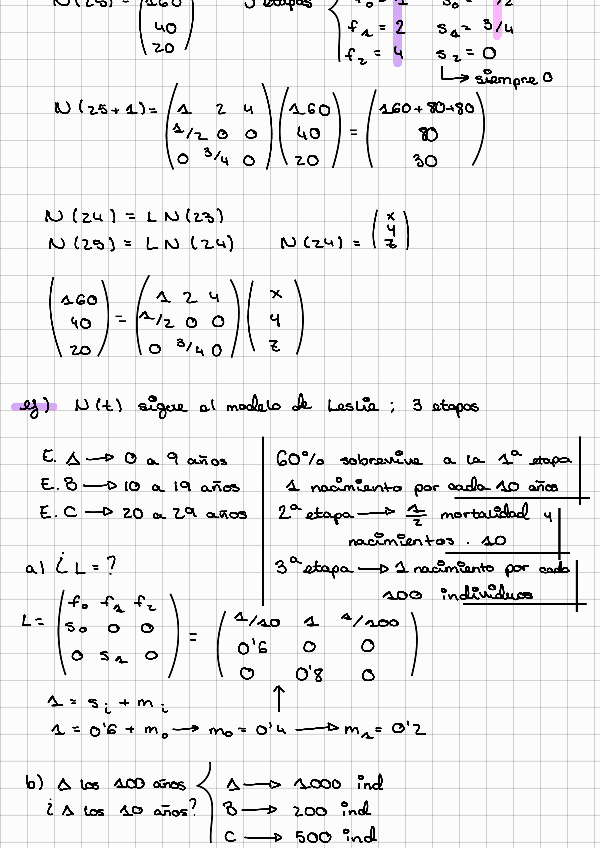 160
3 etapas
40
f₁ = 2 s₁ = 3/4
20
f₂ = 4 s₂ = 0
↳ siempre 0
N(25+1) = (1 2 4) (160) = (160+80+80)
(1/2 0 0) (40) (80)
(0 3/4 0) (20) (30)
N(24) = L N(23)
N(25) = L N(24) N(24) = (x y z)
(160) = (1 2 4) (x)
(40) (1/2 0 0) (y)
(20) (0 3/4 0) (z)
ej) N(t) sigue el modelo de Leslie; 3 etapas
E. A → 0 a 9 años
E. B → 10 a 19 años
E. C → 20 a 29 años
60% sobrevive a la 1ª etapa
1 nacimiento por cada 10 años
2ª etapa → 1/2 mortalidad y
nacimientos · 10
3ª etapa → 1 nacimiento por cada
100 individuos
a) ¿L = ?
L = (f₀ f₁ f₂) = (1/10 1 1/100)
(s₀ 0 0) (0'6 0 0)
(0 s₁ 0) (0 0'8 0)
1 = sᵢ + mᵢ ↑
1 = 0'6 + m₀ → m₀ = 0'4 → m₁ = 0'2
b) A los 100 años
¿A los 10 años?
A → 1000 ind
B → 200 ind
C → 500 ind